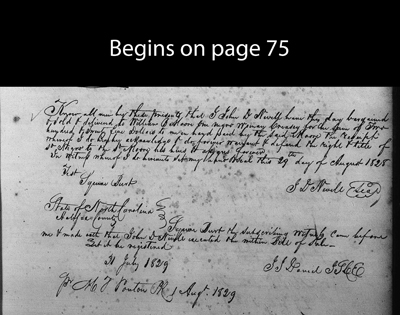 Begins on page 75
Know all men by these presents that I John D Nevill have this day bargained
& sold & delivered to William Moore One negro Woman for the sum of Two
hundred & Twenty five Dollars to me in hand paid by the said Moore the receipt
whereof I do hereby acknowledge & do forever warrant & defend the right & title of
sd Negro to the sd Moore his heirs & assigns forever
In witness whereof I do hereunto set my hand & seal this 29th day of August 1828
Test
J D Nevill Seal
Squire Dust
State of North Carolina
Halifax County
Squire Dust the subscribing witness came before
me & made oath that John D Nevill executed the within Bill of Sale
Let it be registered
31 July 1829
J J Daniel JSCLE
1 Augt. 1829